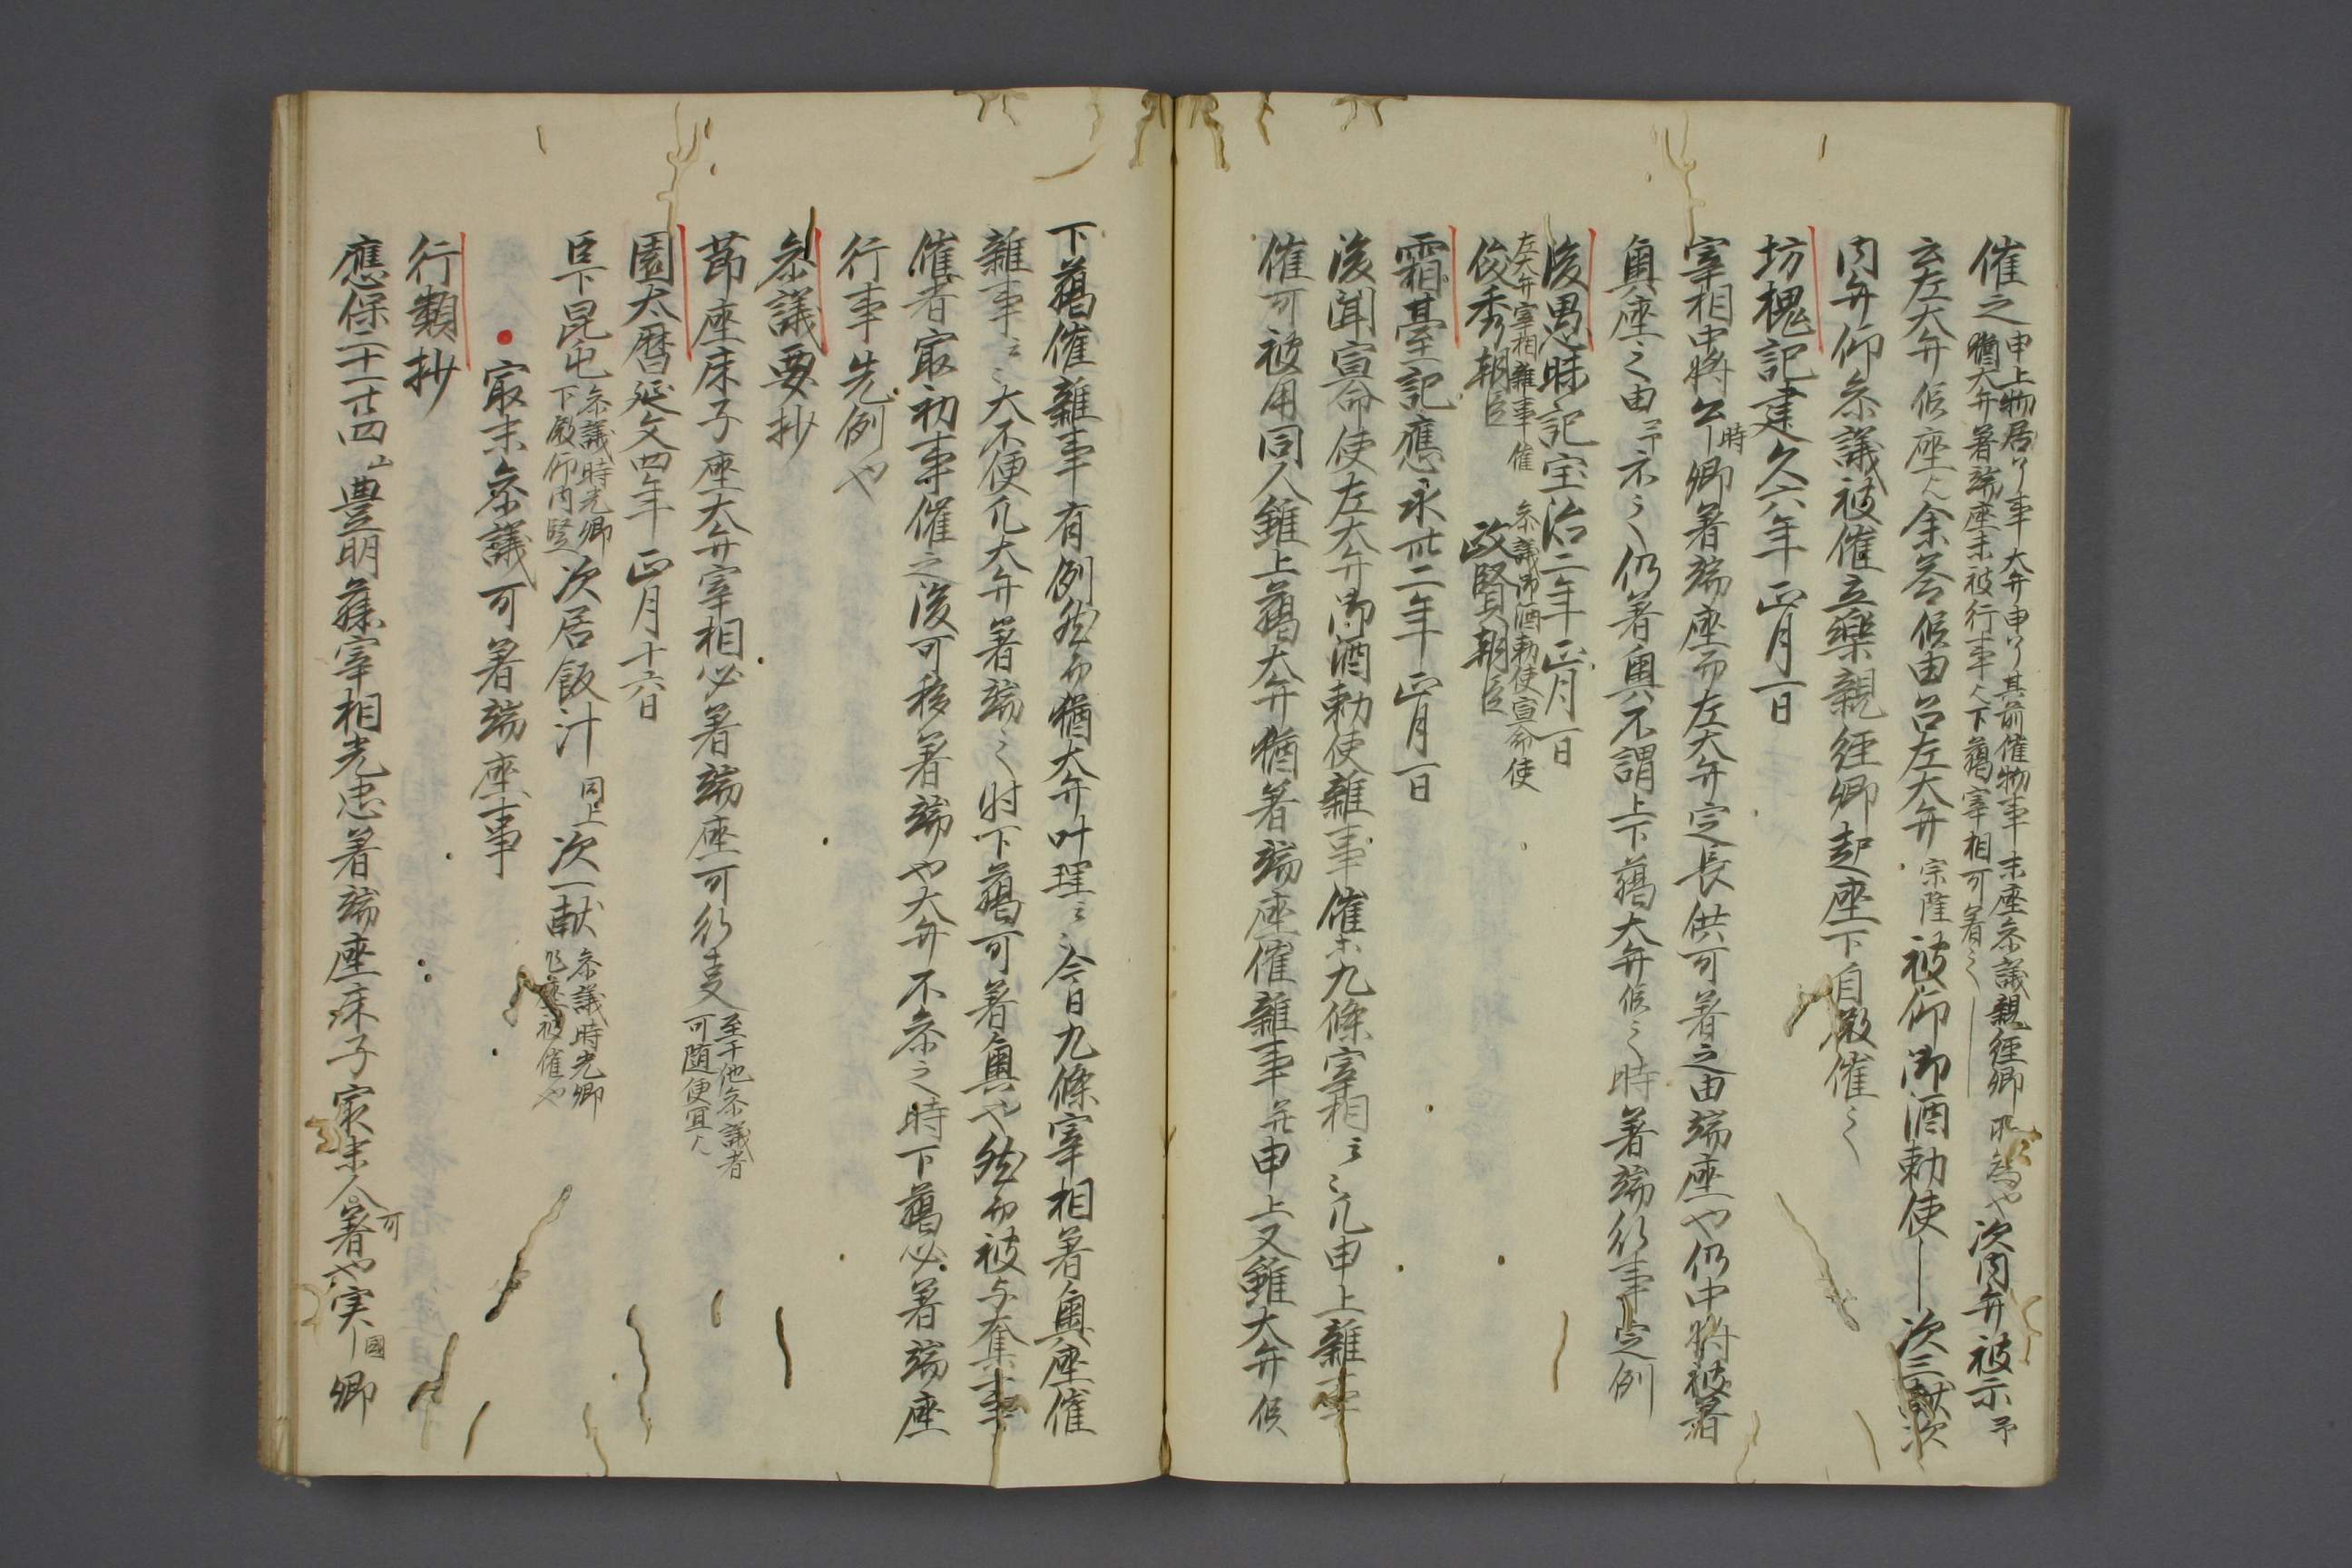 催之申上物居了事大弁申了其前催物事末座参議親経卿所為也次内弁被示予
猶大弁着端座未被行事人下﨟宰相可着云々
云左大弁候座人余答候由召左大弁宗隆被仰御酒勅使―次三献次
内弁仰参議被催立楽親経卿起座下自殿催云々
坊槐記建久六年正月一日
宰相中将公時卿着端座而左大弁定長供可着之由端座也仍中将被着
奥座之由示之仍着奥不謂上下﨟大弁候之時着端行事定例
後愚昧記宝治二年正月一日
左大弁宰相雑事催 参議御酒勅使宣命使
俊秀朝臣 政賢朝臣
霜臺記應永卅二年正月一日
後聞宣命使左大弁御酒勅使雑事催等九條宰相云々凡申上雑事
催可被用同人雖上﨟大弁猶着端座催雑事并申上又雖大弁候
下﨟催雑事有例然而猶大弁叶理云々今日九條宰相着奥座催
雑事云々大不便凡大弁着端之時下﨟可着奥也然而被与奪事
催者寂初事催之後可移着端也大弁不参之時下﨟必着端座
行事先例也
参議要抄
節座床子座大弁宰相必着端座可行事至于他参議者
可随便宜人
園太暦延文四年正月十六日
臣下昆屯参議時光卿
下殿仰内竪次居飯汁同上次一献参議時光卿
被催也
寂末参議可着端座事
行類抄
應保二十一廿四豊明蔭宰相光忠着端座床子寂末人可着也実国卿